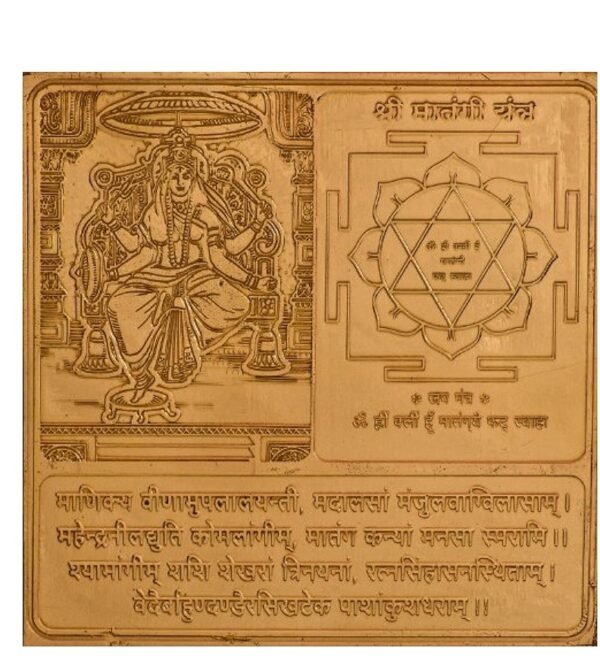 श्री मातंगी यंत्र
ॐ ह्रीं क्लीं हूँ
मातंग्यै
फट् स्वाहा
❈ जप मंत्र ❈
ॐ ह्रीं क्लीं हूँ मातंग्यै फट् स्वाहा
माणिक्य वीणामुपलालयन्ती, मदालसां मंजुलवाग्विलासाम् ।
महेन्द्रनीलद्युति कोमलांगीम्, मातंग कन्यां मनसा स्मरामि ।।
श्यामांगीम् शशि शेखरां त्रिनयनां, रत्नसिंहासनस्थिताम् ।
पाशांकुशधराम् ।।